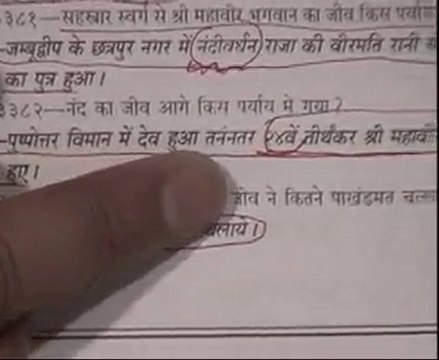 ३८१—सहस्रार स्वर्ग से श्री महावीर भगवान का जीव किस पर्याय
-जम्बूद्वीप के छत्रपुर नगर में नंदीवर्धन राजा की वीरमति रानी
का पुत्र हुआ।
३३८२—नंद का जीव आगे किस पर्याय में गया?
-पुष्पोत्तर विमान में देव हुआ तनंनतर २४वें तीर्थंकर श्री महावी
हुए।
जीव ने कितने पाखंडमत चला
चलाये।